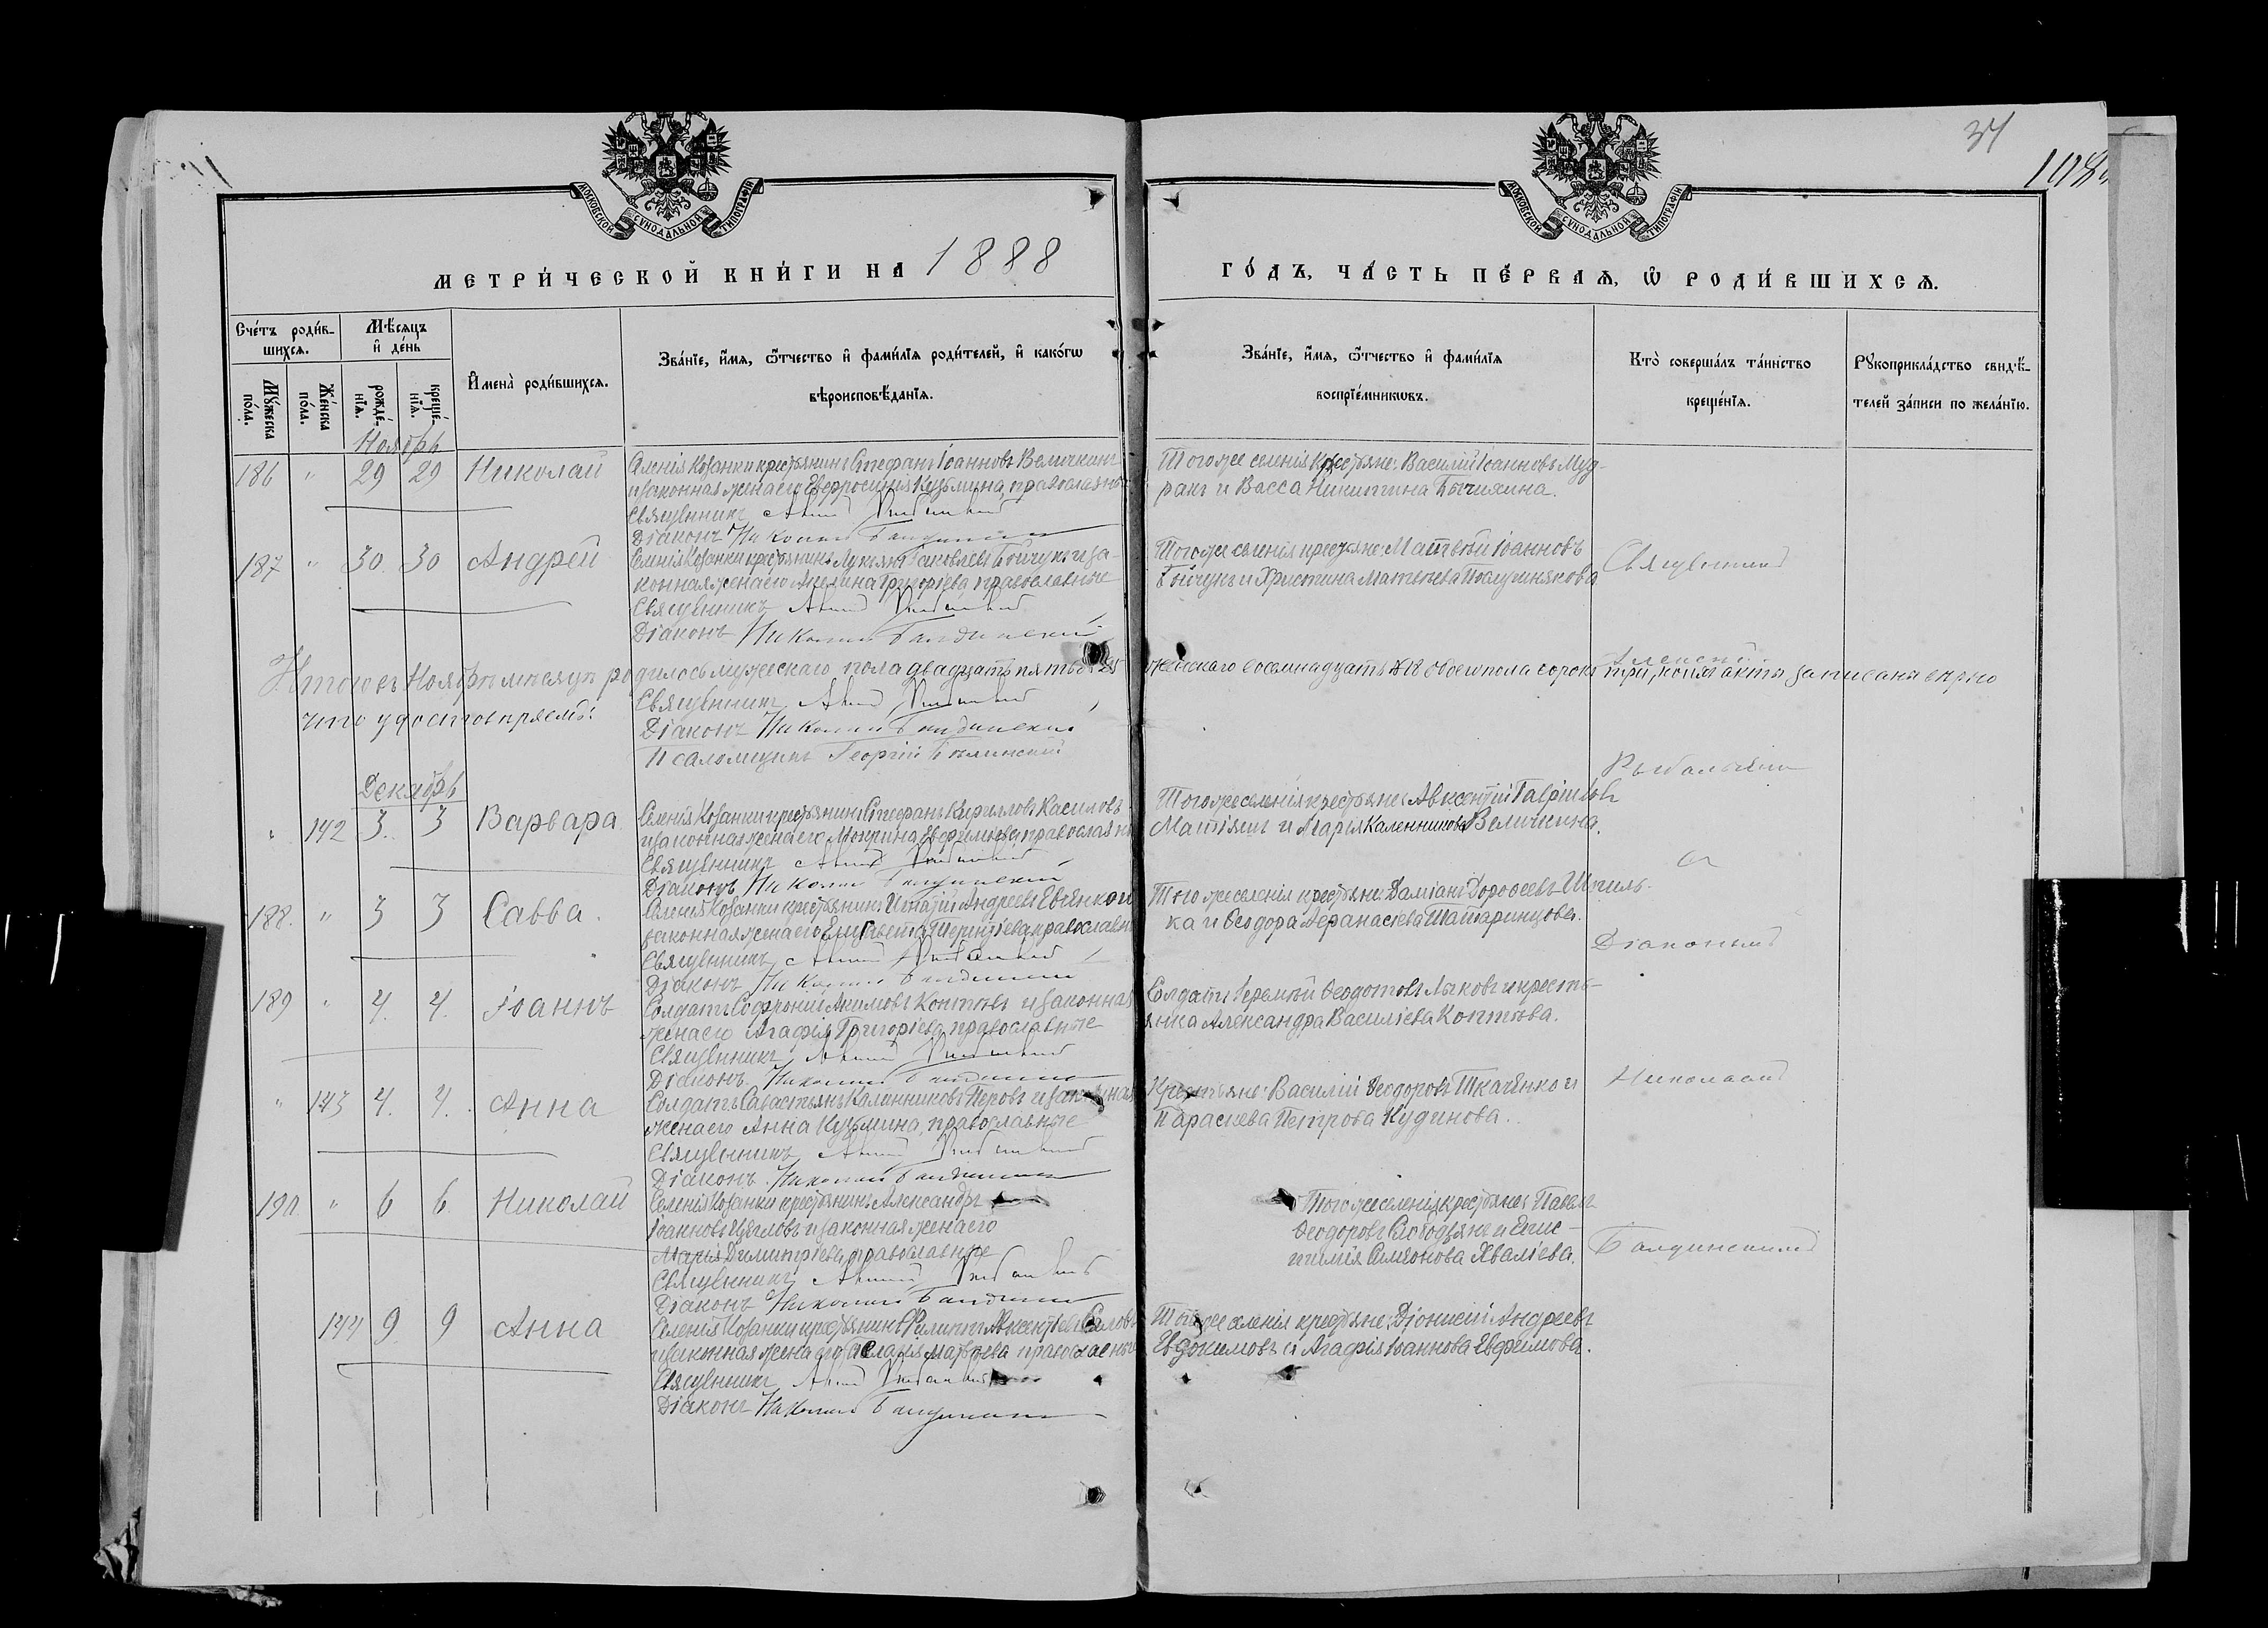 34
МОСКОВСКОЙ СУНОДАЛЬНОЙ ТИПОГРАФІИ
МОСКОВСКОЙ СУНОДАЛЬНОЙ ТИПОГРАФІИ
МЕТРИ́ЧЕСКОЙ КНИ́ГИ НА 1888
ГО́ДЪ, ЧА́СТЬ ПЕ́РВАѦ, Ѡ҆ РОДИ́ВШИХСѦ.
Сче́тъ роди́вшихсѧ.
Мꙋ́жеска по́ла.
Же́нска по́ла.
Мѣ́сѧцъ и҆ де́нь
рожде́нїѧ.
креще́нїѧ.
И҆мена̀ роди́вшихсѧ.
Зва́нїе, и҆́мѧ, ѻ҆́тчество и҆ фами́лїѧ роди́телей, и҆ како́гѡ
вѣроисповѣ́данїѧ.
Зва́нїе, и҆́мѧ, ѻ҆́тчество и҆ фами́лїѧ
воспрїе́мникѡвъ.
Кто̀ соверша́лъ та́инство
креще́нїѧ.
Рꙋкоприкла́дство свидѣ́-
телей за́писи по жела́нїю.
Ноябрь
186 " 29 29 Николай
Селенія Козанки крестьянинъ Стефанъ Іоанновъ Величкинъ
и законная жена его Евфросинія Кузьмина, православные
Священникъ
Діаконъ Николай Балдинскій
Того же селенія крестьяне: Василій Іоанновъ Муд-
ракъ и Васса Никитина Бычихина.
187 " 30 30 Андрей
Селенія Козанки крестьянинъ Лукьянъ Іаковлевъ Бойчукъ и за-
конная жена его Акилина Григорьева, православные
Священникъ
Діаконъ Николай Балдинскій
Того же селенія крестьяне: Матвѣй Іоанновъ
Бойчукъ и Христина Матвѣева
Священникъ
Итого въ Ноябрѣ мѣсяцѣ родилось мужескаго пола двадцать пять 25 женскаго восемнадцать 18 обоего пола сорокъ три, коихъ акты записаны вѣрно
что удостовѣряемъ:
Священникъ
Діаконъ Николай Балдинскій
Псаломщикъ Георгій
Декабрь
" 142 3. 3 Варвара
Селенія Козанки крестьянинъ Стефанъ Кирилловъ Касиловъ
и законная жена его Мокрина Евфимова, православные
Священникъ
Діаконъ Николай Балдинскій
Того же селенія крестьяне: Авксентій Гавріиловъ
Матіяшъ и Марія Каленникова Величкина.
съ
188. " 3 3 Савва.
Селенія Козанки крестьянинъ Игнатій Андреевъ Евченко и
законная жена его Елисавета Терентіева, православные
Священникъ
Діаконъ Николай Балдинскій
Того же селенія крестьяне: Даміанъ Дороѳеевъ Шпиль-
ка и Ѳеодора Аѳанасіева Татаринцова.
Діакономъ
189 " 4. 4. Іоаннъ
Солдатъ Софроній Акимовъ Коптевъ и законная
жена его Агафія Григоріева, православные
Священникъ
Діаконъ Николай Балдинскій
Солдатъ Іеремѣй Ѳеодотовъ Лыковъ и кресть-
янка Александра Василіева Коптева.
" 143 4. 4. Анна
Солдатъ Савастьянъ Калинниковъ Перовъ и законная
жена его Анна Кузьмина, православные
Священникъ
Діаконъ Николай Балдинскій
Крестьяне: Василій Ѳеодоровъ Ткаченко и
Параскева Петрова Кудинова.
Николаемъ
190. " 6 6. Николай
Селенія Козанки крестьянинъ Александръ
Іоанновъ и законная жена его
Марія Димитріева, православные
Священникъ
Діаконъ Николай Балдинскій
Того же селенія крестьяне: Павелъ
Ѳеодоровъ Слободянъ и Епис-
тимія Симеонова Хваліева.
Балдинскимъ
144 9 9 Анна
Селенія Козанки крестьянинъ Филиппъ Авксентіевъ
и законная жена его Пелагія, православные
Священникъ
Діаконъ Николай Балдинскій
Того же селенія крестьяне: Діонисій Андреевъ
Евдокимовъ и Агафія Іоаннова Евфимова.